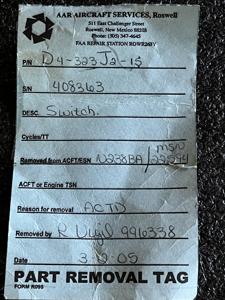 AAR AIRCRAFT SERVICES, Roswell
511 East Challenger Street
Roswell, New Mexico 88203
Phone: (505) 347-4645
FAA REPAIR STATION
P/N D4-323J2-1S
S/N 408363
DESC. Switch.
Cycles/TT
Removed from ACFT/ESN N238BA/ MSN
ACFT or Engine TSN
Reason for removal ACTD
Removed by R Vigil 996338
Date 05
PART REMOVAL TAG
FORM R095